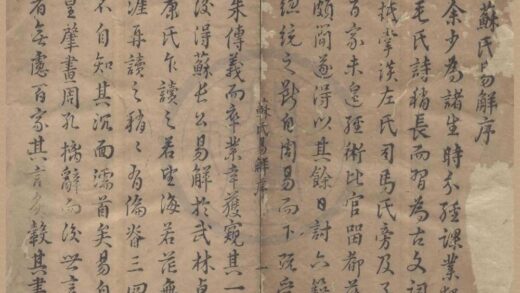 蘇氏易解序
余少為諸生時分經課業
毛氏詩稍長而習為古文詞
漢左氏司馬氏旁及
百家未遑經術比官留都
頗閒遂得以其餘日討六籍
總統之斷自周易而下
蘇氏易解序
一
朱傳義而卒業幸獲窺其一
後得蘇長公易解於武林卓
康氏乍讀之若望海若茫
涯再讀之稍々有倫脊三四
不自知其沉面濡首矣易自
皇肇畫周孔摛辭而後世言
者無慮百家其言家轂其書